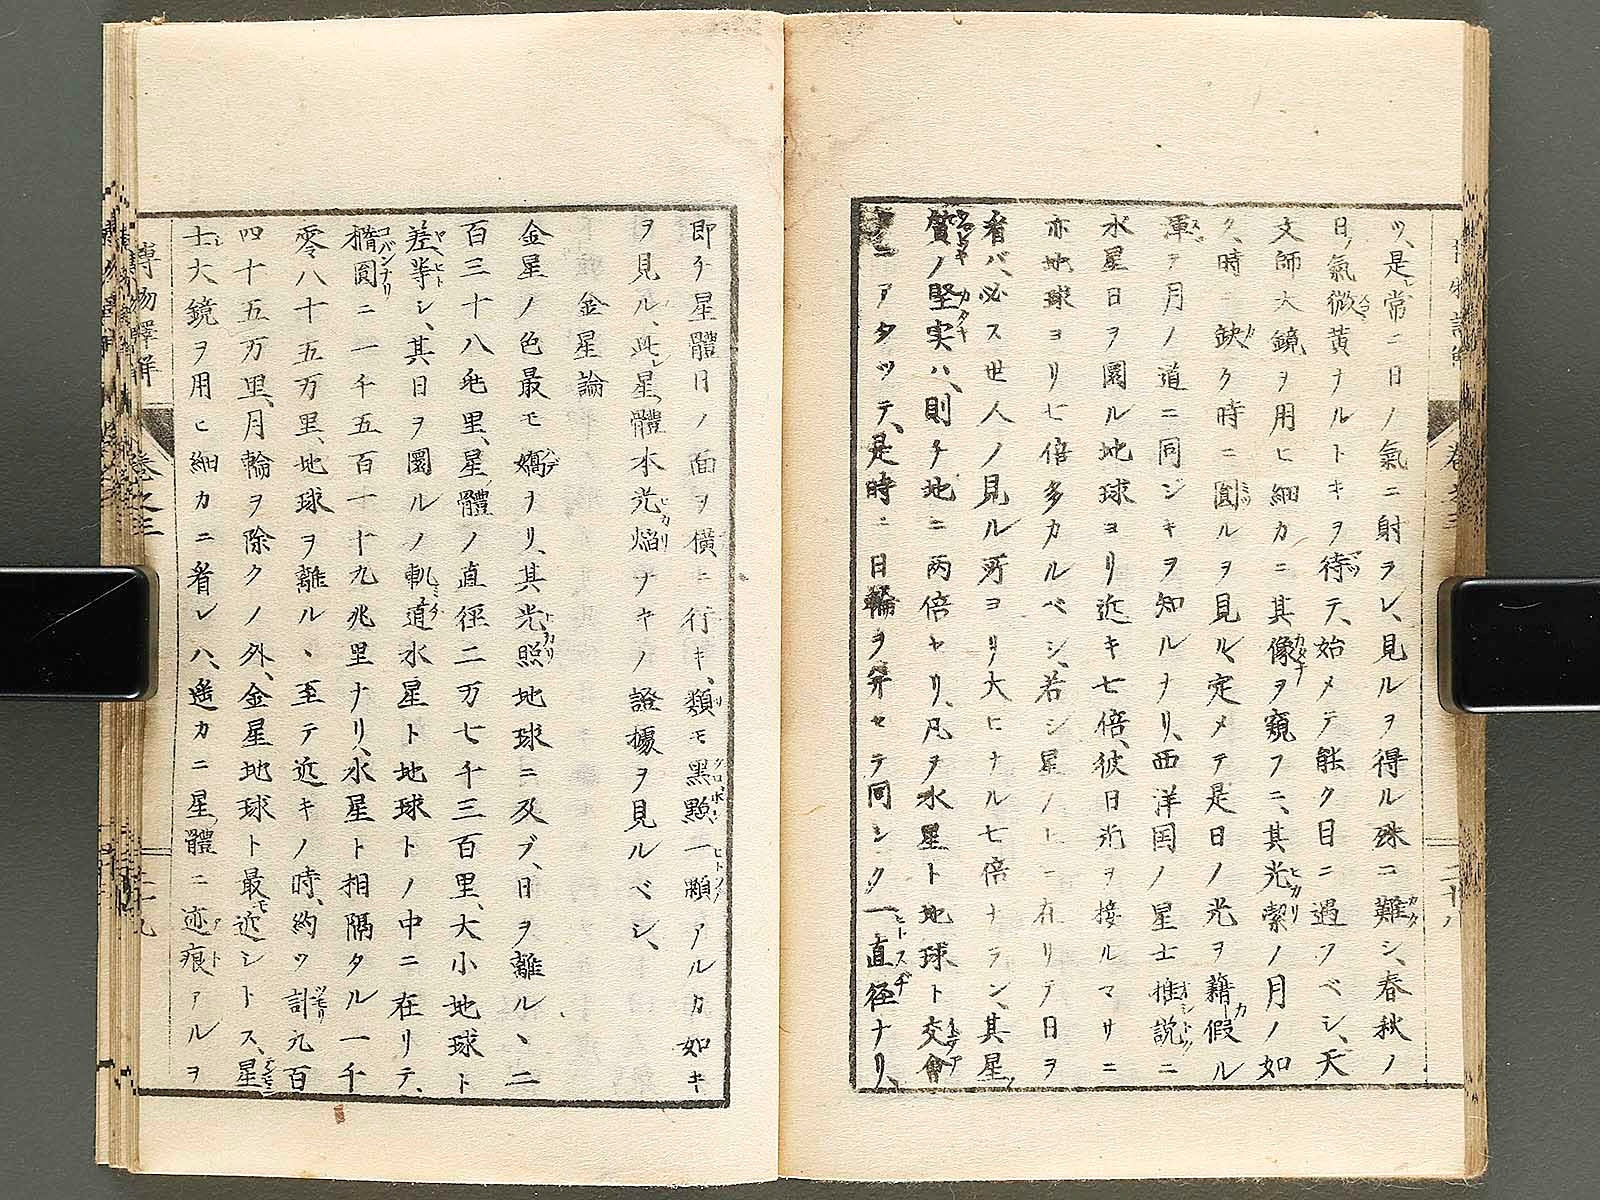 ツ、是常ニ日ノ氣ニ射ヲレ、見ルヲ得ル殊ニ難シ、春秋ノ
日ノ氣微黄ナルトキヲ待テ、始メテ能ク目ニ遇フベシ、天
文師大鏡ヲ用ヒ細カニ其像ヲ窺フニ、其光潔ノ月ノ如
ク、時ニ缺ク時ニ圓ルヲ見ル、定メテ是日ノ光ヲ藉假ル
ヿヲ月ノ道ニ同ジキヲ知ルナリ、西洋国ノ星士推説ニ
水星日ヲ圜ル地球ヨリ近キ七倍、彼日光ヲ接ルマサニ
亦地球ヨリ七倍多カルベシ、若シ星ノ上ニ在リテ日ヲ
看バ、必ス世人ノ見ル所ヨリ大ヒナル七倍ナラン、其星
質ノ堅実ハ、則チ地ニ両倍セリ、凡ヲ水星ト地球ト交會
ニアタツテ、是時ニ日輪ヲ并セテ同シク一直径ナリ、
即チ星體日ノ面ヲ横ニ行キ、類モ黒點一顆アルカ如キ
ヲ見ル、此レ星體本光焔ナキノ證據ヲ見ルベシ、
金星論
金星ノ色最モ嬌ヲリ、其光照地球ニ及ブ、日ヲ離ル、二
百三十八兆里、星體ノ直徑二万七千三百里、大小地球ト
差等シ、其日ヲ圜ルノ軌道水星ト地球トノ中ニ在リテ、
橢圓ニ一千五百一十九兆里ナリ、水星ト相隔タル一千
零八十五万里、地球ヲ離ル、至テ近キノ時、約ツ計九百
四十五万里、月輪ヲ除クノ外、金星地球ト最モ近シトス、星
士大鏡ヲ用ヒ細カニ看レハ、遙カニ星體ニ迹痕アルヲ
博物釋詳
巻之三
二十九
巻之三
二十八